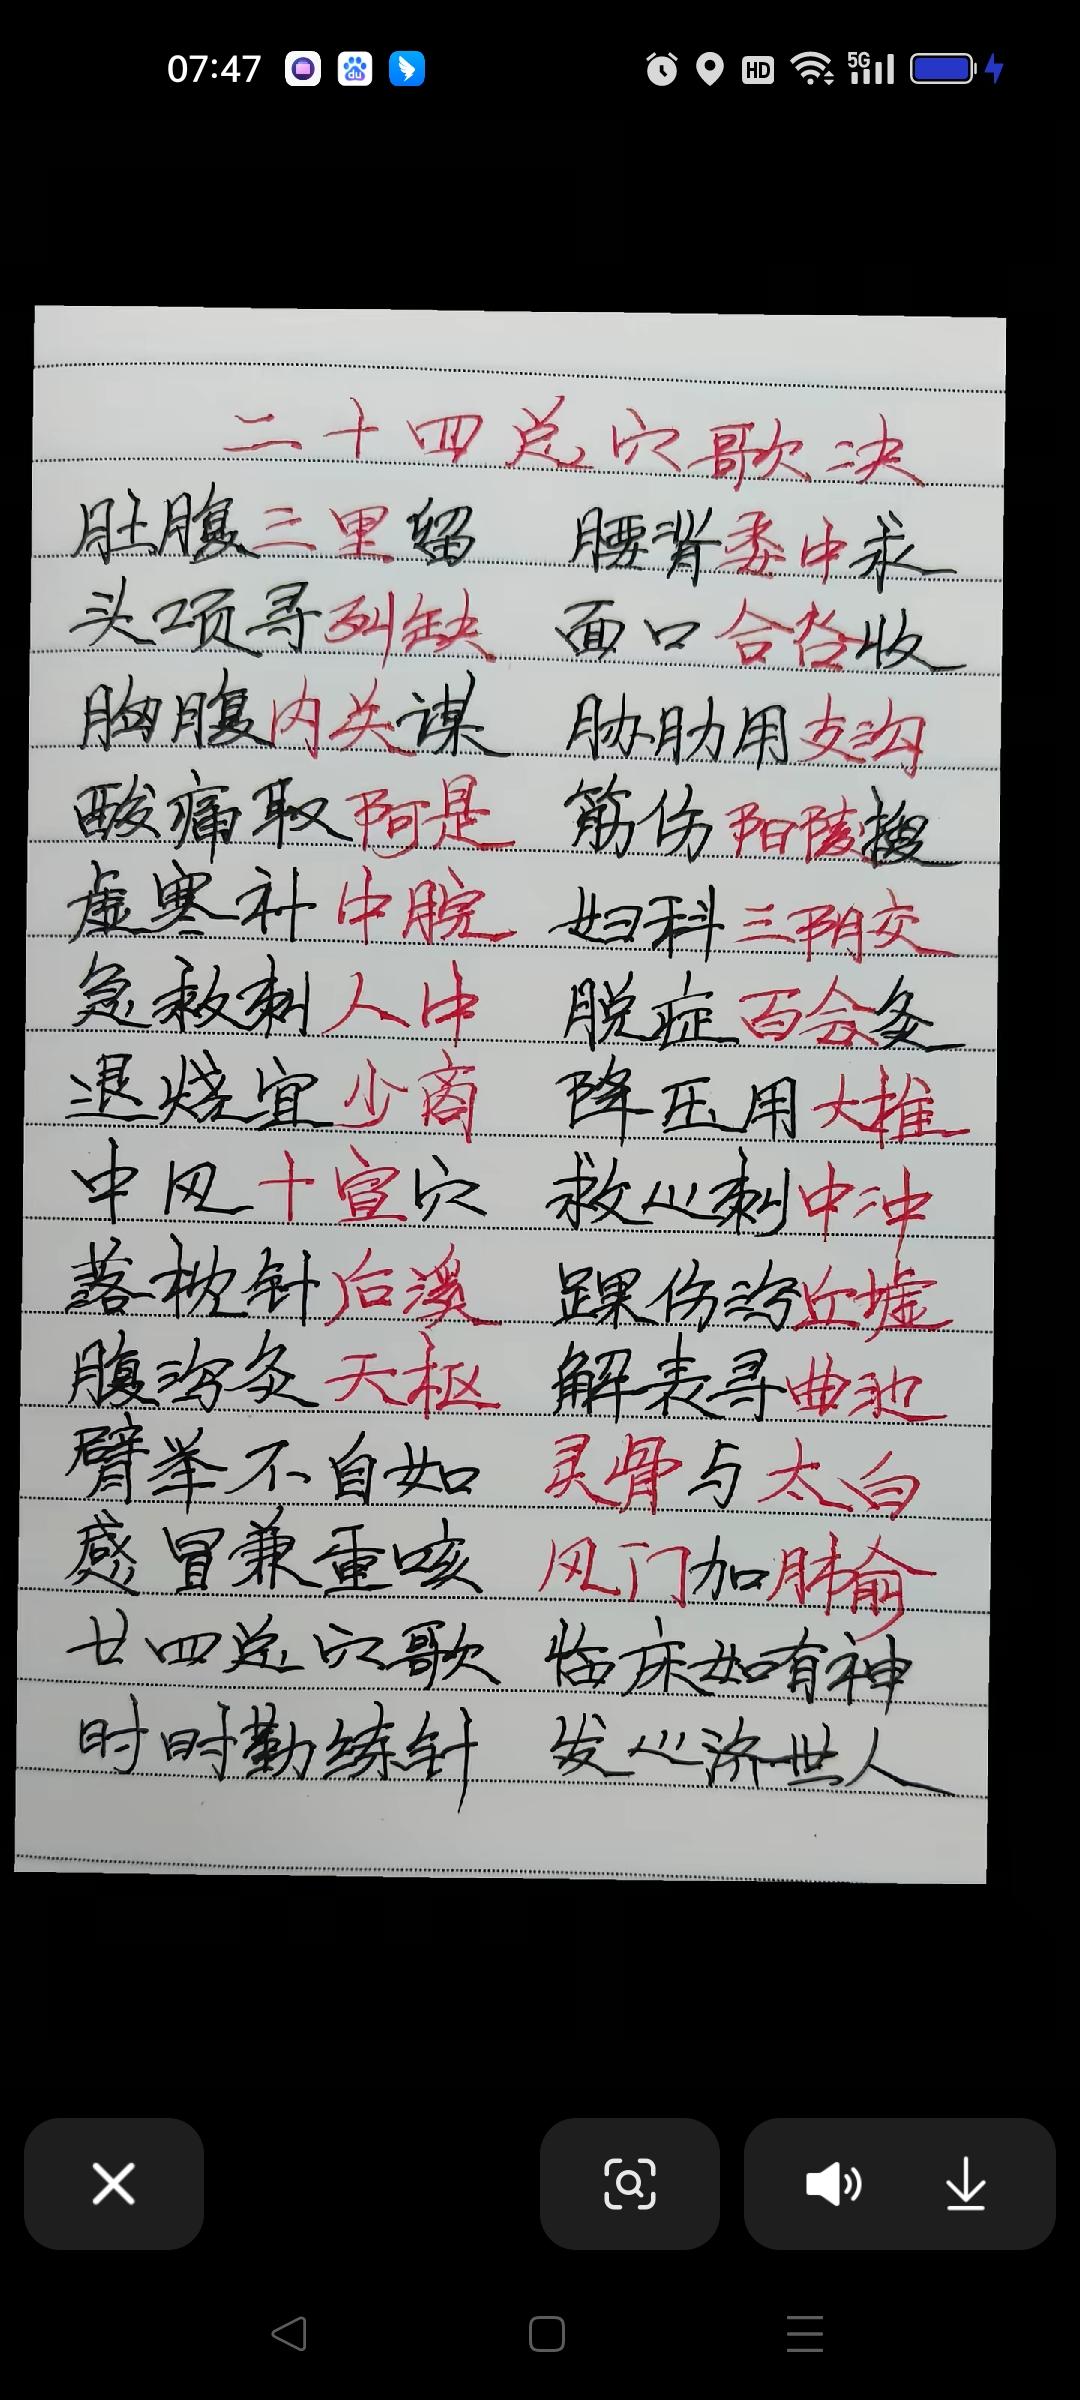 07:47
du
HD
5G
二十四总穴歌决
肚腹三里留 腰背委中求
头项寻列缺 面口合谷收
胸腹内关谋 胁肋用支沟
酸痛取阿是 筋伤阳陵搜
虚寒补中脘 妇科三阴交
急救刺人中 脱症百会灸
退烧宜少商 降压用大推
中风十宣穴 救心刺中冲
落枕针后溪 踝伤沟丘墟
腹沟灸天枢 解表寻曲池
臂举不自如 灵骨与太白
感冒兼重咳 风门加肺俞
廿四总穴歌 临床如有神
时时勤练针 发心济世人